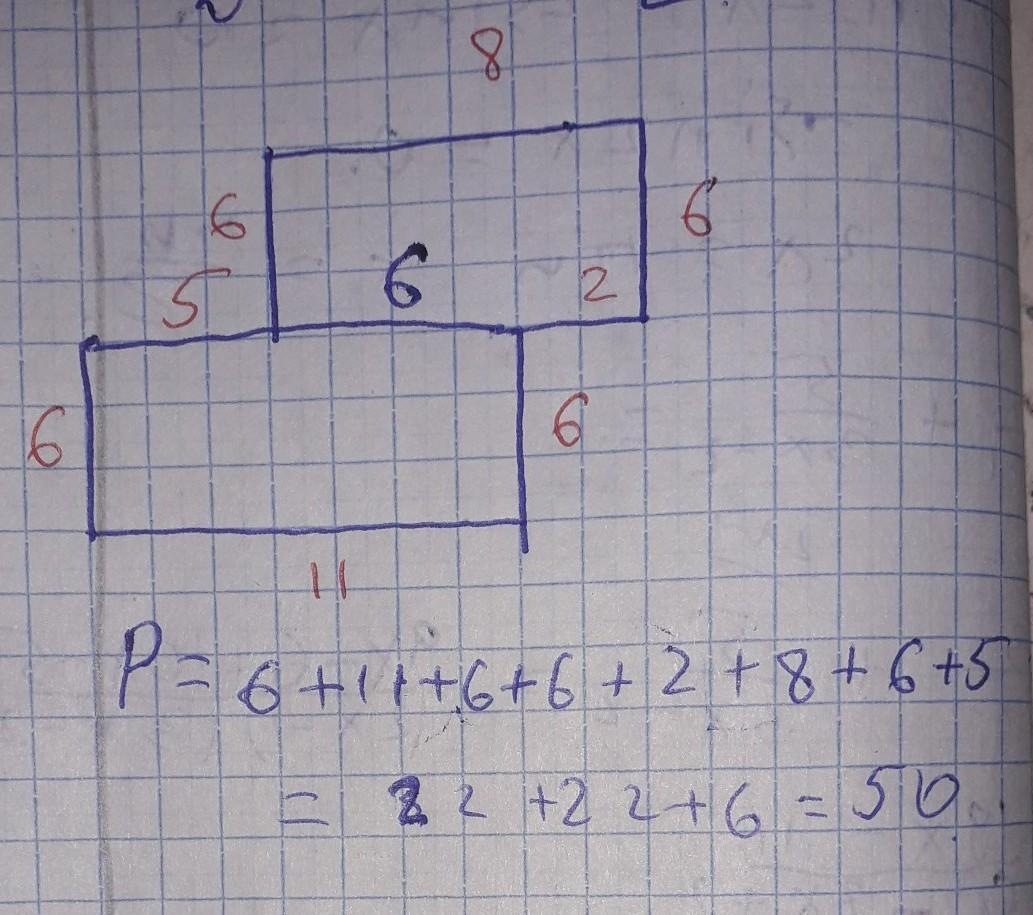 8
6
6
5
6
2
6
6
11
P = 6 + 11 + 6 + 6 + 2 + 8 + 6 + 5
= 22 + 22 + 6 = 50